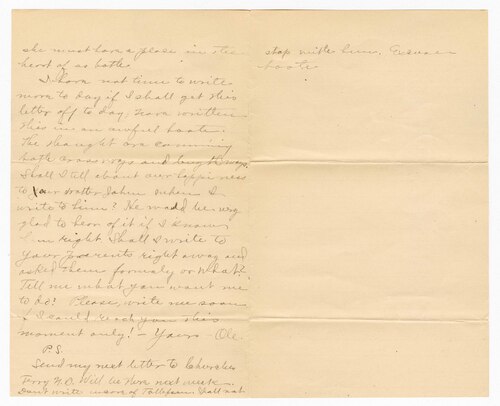 she must have a place in the
heart of us bothe.
I have not time to write
more to day if I shall get this
letter off to day. Have written
this in an awful haste.
The thought are comming
bothe crossways and
Shall I tell about our happiness
to your brother John when I
write to him? He would be very
glad to hear of it if I know
him right. Shall I write to
your parents right away and
asked them formaly or what?
Tell me what you want me
to do! Please, write me soon
if I could reach you this
moment only! - Yours - Ole.
P.S.
Send my next letter to Churches
Ferry N.D. Will be there next week.
Dont write in care of Shall not
stop with him. Excuse
haste